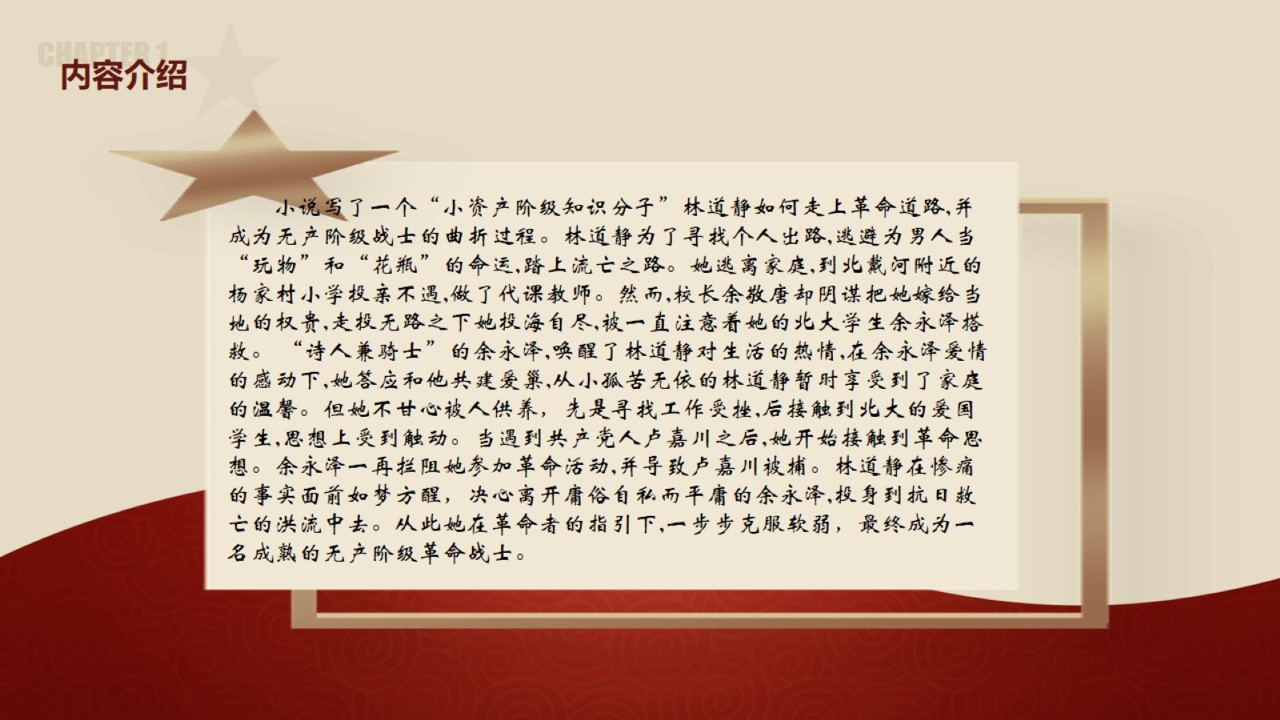 CHAPTER 1
内容介绍
小说写了一个“小资产阶级知识分子”林道静如何走上革命道路,并
成为无产阶级战士的曲折过程。林道静为了寻找个人出路,逃避为男人当
“玩物”和“花瓶”的命运,踏上流亡之路。她逃离家庭,到北戴河附近的
杨家村小学投亲不遇,做了代课教师。然而,校长余敬唐却阴谋把她嫁给当
地的权贵,走投无路之下她投海自尽,被一直注意着她的北大学生余永泽搭
救。“诗人兼骑士”的余永泽,唤醒了林道静对生活的热情,在余永泽爱情
的感动下,她答应和他共建爱巢,从小孤苦无依的林道静暂时享受到了家庭
的温馨。但她不甘心被人供养，先是寻找工作受挫,后接触到北大的爱国
学生,思想上受到触动。当遇到共产党人卢嘉川之后,她开始接触到革命思
想。余永泽一再拦阻她参加革命活动,并导致卢嘉川被捕。林道静在惨痛
的事实面前如梦方醒，决心离开庸俗自私而平庸的余永泽,投身到抗日救
亡的洪流中去。从此她在革命者的指引下,一步步克服软弱，最终成为一
名成熟的无产阶级革命战士。